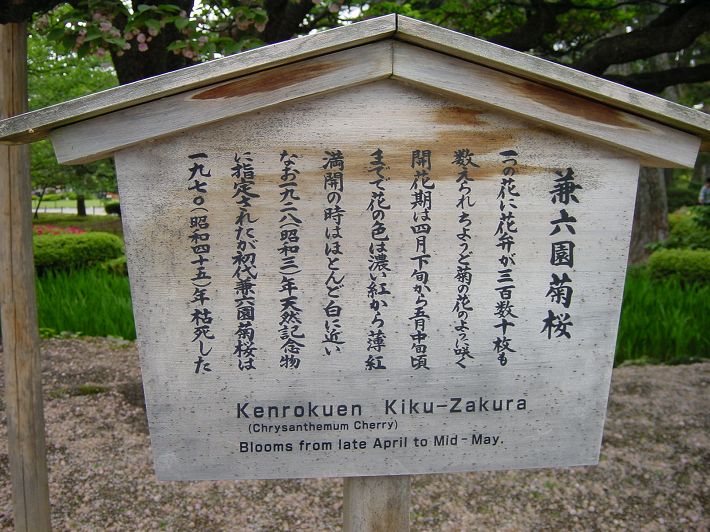 兼六園菊桜
一つの花に花弁が三百数十枚も
数えられちようど菊の花のように咲く
開花期は四月下旬から五月中旬頃
まで花の色は濃い紅から薄紅
満開の時はほとんど白に近い
なお一九二八(昭和三)年天然記念物
に指定されたが初代兼六園菊桜は
一九七〇(昭和四十五)年枯死した
Kenrokuen Kiku-Zakura
(Chrysanthemum Cherry)
Blooms from late April to Mid-May.